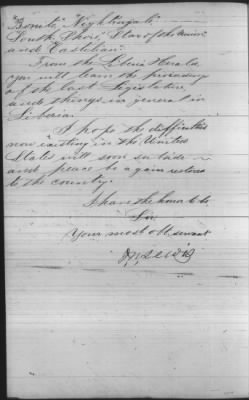 "Bonita" "Nightingale"
South Shore, Star of the Union
and Castilian".
From the Liberia Herald,
you will learn the proceedings
of the last Legislature,
and things in general in
Liberia.
I hope the difficulties
now existing in the United
States will soon subside
and peace be again restored
to the country.
I have the honor to be
Sir
Your most obt servant